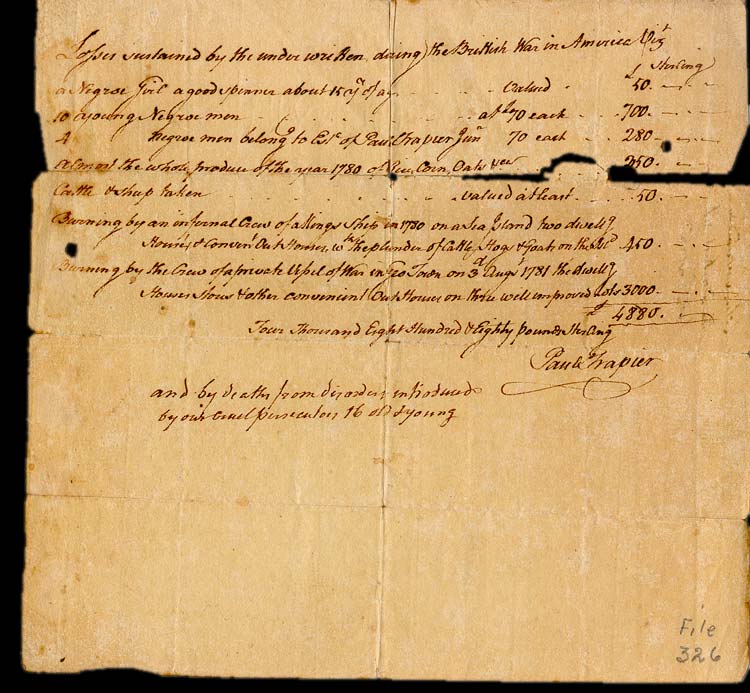 Losses sustained by the under written during the British War in America Vizt
£ Sterling
a Negroe Girl a good spinner about 15 yrs of age - - - Valued - - 50. - -
10 a young Negroe men - - - at £70 each - - 700. - -
4 Negroe men belongg to Est. of Paul Trapier Junr 70 each - - 280 - -
Almost the whole produce of the year 1780 of Rice, Corn, Oats &ca - - 350. - -
Cattle & sheep taken - - - valued at least - - 50. - -
Burning by an infernal Crew of a Kings Ship in 1780 on a Sea Island two dwellg
Houses, & Convent Out Houses, wth the plunder of Cattle, Hogs & Goats on the 450. - -
Burning by the Crew of a private Vessel of War in Geo Town on 3d Augt 1781 the dwellg
Houses Stores & other convenient Out Houses on three well improved Lots 3000. - -
£ 4880. - -
Four Thousand Eight Hundred & Eighty pounds Sterling
Paul Trapier
and by deaths from disorders introduced
by our Cruel persecutors 16 old & young
File
326